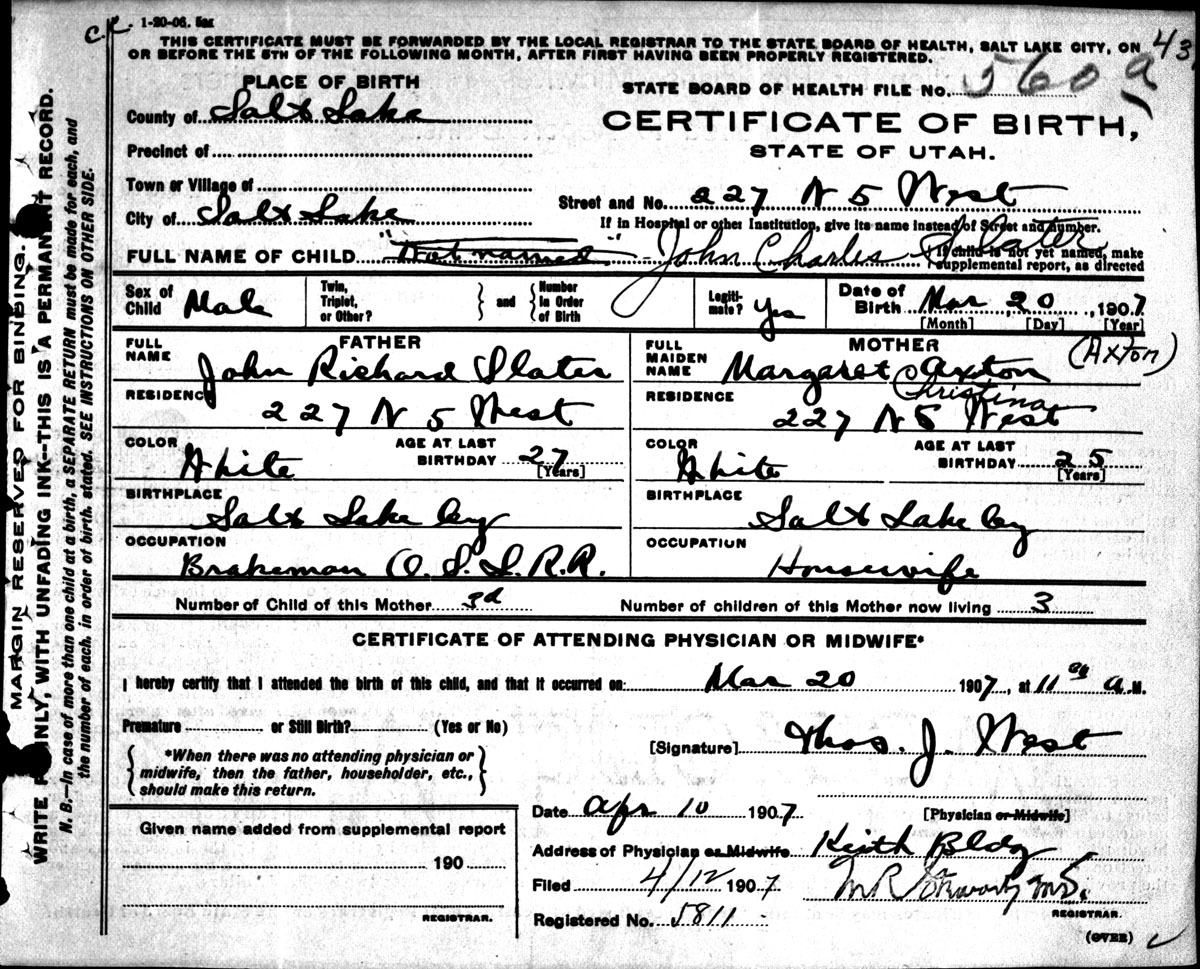 1-20-06. 5m
C.K.
THIS CERTIFICATE MUST BE FORWARDED BY THE LOCAL REGISTRAR TO THE STATE BOARD OF HEALTH, SALT LAKE CITY, ON
OR BEFORE THE 5TH OF THE FOLLOWING MONTH, AFTER FIRST HAVING BEEN PROPERLY REGISTERED.
43
PLACE OF BIRTH
STATE BOARD OF HEALTH FILE No. 560 a
County of Salt Lake
CERTIFICATE OF BIRTH,
Precinct of
STATE OF UTAH.
Town or Village of
Street and No. 227 N 5 West
City of Salt Lake
If in Hospital or other Institution, give its name instead of Street and number.
FULL NAME OF CHILD "Not named" John Charles Slater
If child is not yet named, make
supplemental report, as directed
Sex of Child Male
Twin, Triplet, or Other?
and
Number in Order of Birth
Legiti- mate? Yes
Date of Birth Mar 20, 1907
[Month] [Day] [Year]
FATHER
FULL NAME John Richard Slater
RESIDENCE 227 N 5 West
COLOR White
AGE AT LAST BIRTHDAY 27
[Years]
BIRTHPLACE Salt Lake Cy
OCCUPATION Brakeman O.S.L.R.R.
MOTHER
(Axton)
FULL MAIDEN NAME Margaret Axton
Christina
RESIDENCE 227 N 5 West
COLOR White
AGE AT LAST BIRTHDAY 25
[Years]
BIRTHPLACE Salt Lake Cy
OCCUPATION Housewife
Number of Child of this Mother 3d
Number of children of this Mother now living 3
CERTIFICATE OF ATTENDING PHYSICIAN OR MIDWIFE*
I hereby certify that I attended the birth of this child, and that it occurred on Mar 20 1907, at 11 A.M.
Premature or Still Birth? (Yes or No)
[Signature] Thos. J. West
*When there was no attending physician or
midwife, then the father, householder, etc.,
should make this return.
Date Apr 10 1907
[Physician or Midwife]
Given name added from supplemental report
190
REGISTRAR.
Address of Physician or Midwife Keith Bldg
Filed 4/12 1907
REGISTRAR.
Registered No. 5811
(OVER)
MARGIN RESERVED FOR BINDING.
WRITE PLAINLY, WITH UNFADING INK--THIS IS A PERMANENT RECORD.
N. B.—In case of more than one child at a birth, a SEPARATE RETURN must be made for each, and
the number of each, in order of birth, stated. SEE INSTRUCTIONS ON OTHER SIDE.